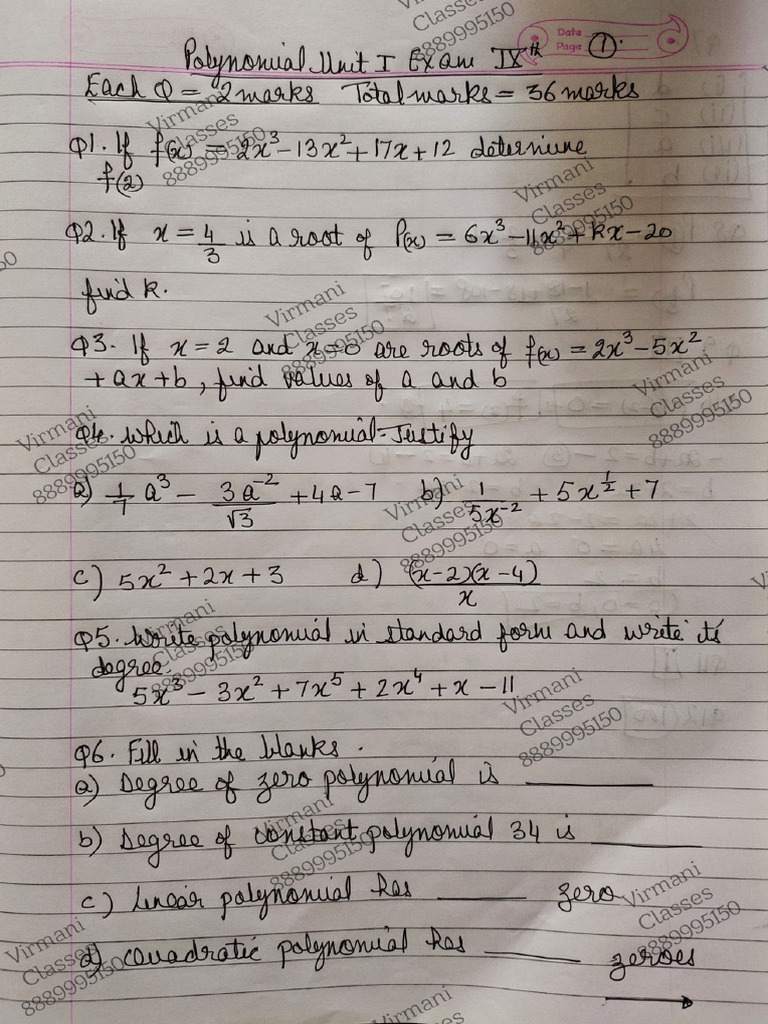 Virmani
Classes
8889995150
Date
Page 1.
Polynomial Unit I Exam IXth
Each Q = 2 marks Total marks = 36 marks
Virmani
Classes
8889995150
Q1. If f(x) = 2x³ - 13x² + 17x + 12 determine
f(2)
Virmani
Classes
8889995150
Q2. If x = 4/3 is a root of P(x) = 6x³ - 11x² + kx - 20
find k.
Virmani
Classes
8889995150
Q3. If x = 2 and x = 0 are roots of f(x) = 2x³ - 5x²
+ ax + b, find values of a and b
Virmani
Classes
8889995150
Virmani
Classes
8889995150
Q4. Which is a polynomial - Justify
a) 1/7 a³ - 3a⁻²/√3 + 4a - 7 b) 1/5x⁻² + 5x^1/2 + 7
Virmani
Classes
8889995150
c) 5x² + 2x + 3 d) (x-2)(x-4)/x
Virmani
Classes
8889995150
Q5. Write polynomial in standard form and write its
degree.
5x³ - 3x² + 7x⁵ + 2x⁴ + x - 11
Virmani
Classes
8889995150
Q6. Fill in the blanks.
a) Degree of zero polynomial is ______
b) Degree of constant polynomial 34 is ______
Virmani
Classes
8889995150
c) Linear polynomial has ______ zero
Virmani
Classes
8889995150
d) Quadratic polynomial has ______ zeroes
Virmani
Classes
8889995150
Virmani